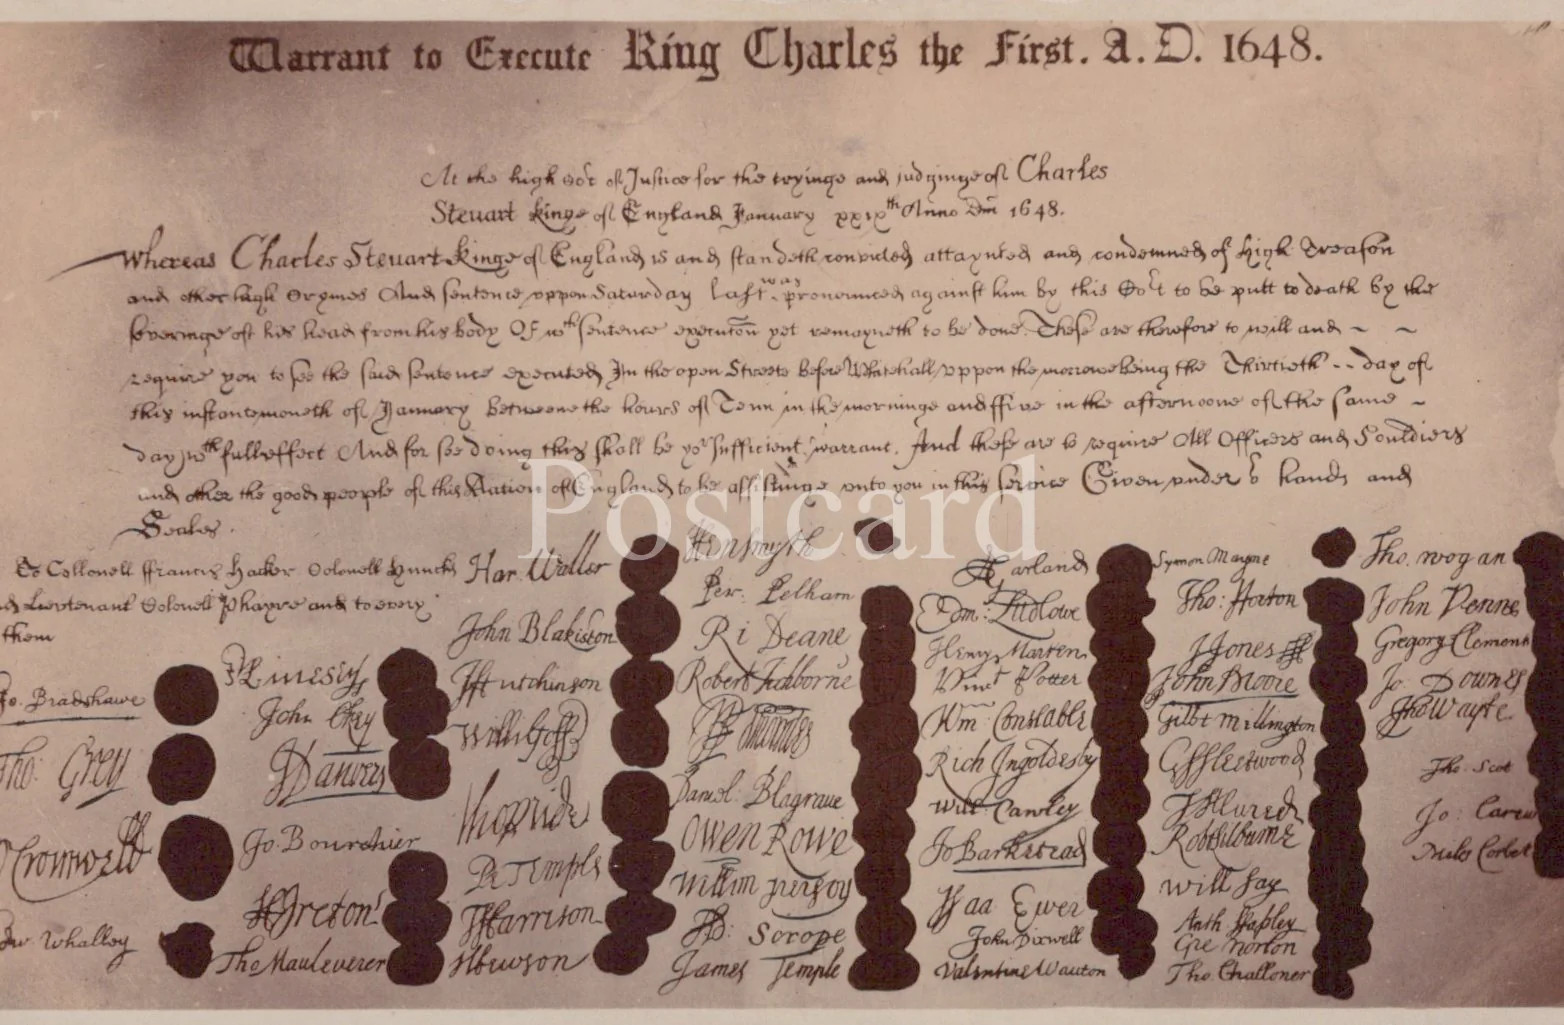 Warrant to Execute King Charles the First. A.D. 1648.
At the high Cort of Justice for the tryinge and iudginge of Charles
Steuart Kinge of England January xxixth Anno Dm 1648.
Whereas Charles Steuart Kinge of England is and standeth convicted attaynted and condemned of High Treason
and other high Crymes And sentence uppon Saturday last was pronounced against him by this Cort to be putt to death by the
severinge of his head from his body Of wch sentence execucon yet remayneth to be done These are therefore to will and
require you to see the said sentence executed In the open Streete before Whitehall uppon the morrowe being the Thirtieth day of
this instante moneth of January betweene the hours of Tenn in the morninge and ffive in the afternoone of the same
day wth full effect And for soe doing this shall be yor sufficient warrant And these are to require All Officers and Souldiers
and other the good people of this Nation of England to be assistinge unto you in this service Given under or hands and
Seales.
Postcard
To Collonell ffrancis Hacker Colonell Huncks
Lieutenant Colonell Phayre and to every
them
Jo. Bradshawe
Tho: Grey
O Cromwell
Edw. Whalley
M Livesey
John Okey
J Danvers
Jo. Bourchier
H Ireton
Tho Mauleverer
Har. Waller
John Blakiston
J Hutchinson
Willi Goff
Tho Pride
P Temple
T Harrison
J Hewson
Hen Smyth
Per. Pelham
Ri Deane
Robert Tichborne
H Edwardes
Daniel Blagrave
Owen Rowe
Willm Purefoy
Ad: Scrope
James Temple
A Garland
Edm: Ludlowe
Henry Marten
Vinct Potter
Wm Constable
Rich Ingoldesby
Will Cawley
Jo Barkstead
Isaa Ewer
John Dixwell
Valentine Wauton
Symon Mayne
Tho: Horton
J Jones
John Moore
Gilbt Millington
G Fleetwood
J Alured
Rob Lilburne
Will Say
Anth Stapley
Gre Norton
Tho Challoner
Tho. Wogan
John Venne
Gregory Clement
Jo. Downes
Tho Wayte
Tho. Scot
Jo: Carew
Miles Corbet